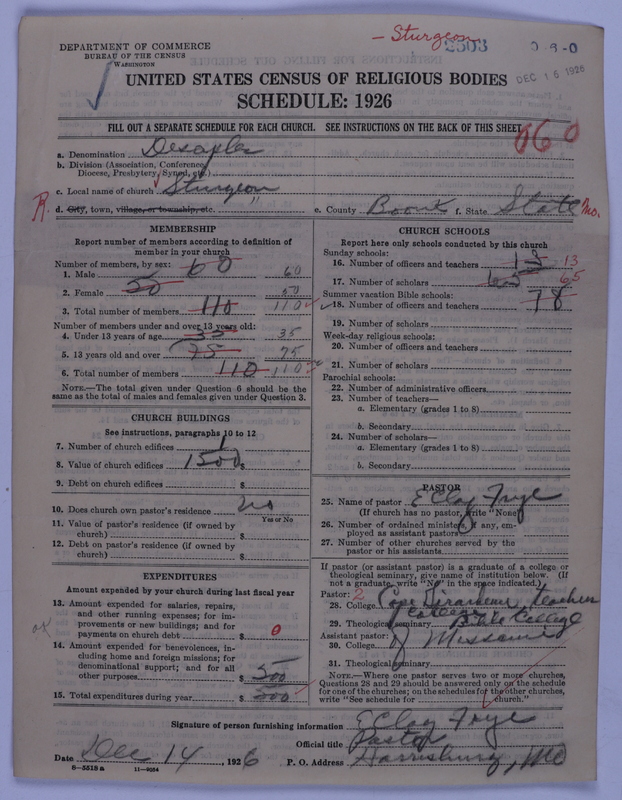 - Sturgeon
2503
0 9-0
DEPARTMENT OF COMMERCE
BUREAU OF THE CENSUS
WASHINGTON
DEC 16 1926
UNITED STATES CENSUS OF RELIGIOUS BODIES
SCHEDULE: 1926
FILL OUT A SEPARATE SCHEDULE FOR EACH CHURCH. SEE INSTRUCTIONS ON THE BACK OF THIS SHEET
060
a. Denomination Desiples
b. Division (Association, Conference,
Diocese, Presbytery, Synod, etc.)
c. Local name of church Sturgeon
R.
d. City, town, village, or township, etc. "
e. County Boone f. State State Mo.
MEMBERSHIP
Report number of members according to definition of
member in your church
Number of members, by sex:
1. Male 60 60
2. Female 50 50
3. Total number of members 110 110
Number of members under and over 13 years old:
4. Under 13 years of age 35 35
5. 13 years old and over 75 75
6. Total number of members 110 110
NOTE.—The total given under Question 6 should be the
same as the total of males and females given under Question 3.
CHURCH BUILDINGS
See instructions, paragraphs 10 to 12
7. Number of church edifices 1
8. Value of church edifices 1500 $
9. Debt on church edifices $
10. Does church own pastor's residence no
Yes or No
11. Value of pastor's residence (if owned by
church) $
12. Debt on pastor's residence (if owned by
church) $
EXPENDITURES
Amount expended by your church during last fiscal year
13. Amount expended for salaries, repairs,
and other running expenses; for im-
provements or new buildings; and for
payments on church debt $ 0
14. Amount expended for benevolences, in-
cluding home and foreign missions; for
denominational support; and for all
other purposes $ 500
15. Total expenditures during year $ 500
CHURCH SCHOOLS
Report here only schools conducted by this church
Sunday schools:
16. Number of officers and teachers 13 13
17. Number of scholars 65 65
Summer vacation Bible schools: 78
18. Number of officers and teachers
19. Number of scholars
Week-day religious schools:
20. Number of officers and teachers
21. Number of scholars
Parochial schools:
22. Number of administrative officers
23. Number of teachers—
a. Elementary (grades 1 to 8)
b. Secondary
24. Number of scholars—
a. Elementary (grades 1 to 8)
b. Secondary
PASTOR
25. Name of pastor E Clay Frye
(If church has no pastor, write "None")
26. Number of ordained ministers, if any, em-
ployed as assistant pastors
27. Number of other churches served by the
pastor or his assistants
If pastor (or assistant pastor) is a graduate of a college or
theological seminary, give name of institution below. (If
not a graduate, write "No" in the space indicated.)
Pastor: 2
28. College Cape Girardeau, teachers
college
29. Theological seminary Bible College
Assistant pastor: of Missouri
30. College
31. Theological seminary
NOTE.—Where one pastor serves two or more churches,
Questions 28 and 29 should be answered only on the schedule
for one of the churches; on the schedules for the other churches,
write "See schedule for church."
Signature of person furnishing information E Clay Frye
Official title Pastor
Date Dec 14, 1926 P. O. Address Harrisburg, Mo
8—5518a 11—9064